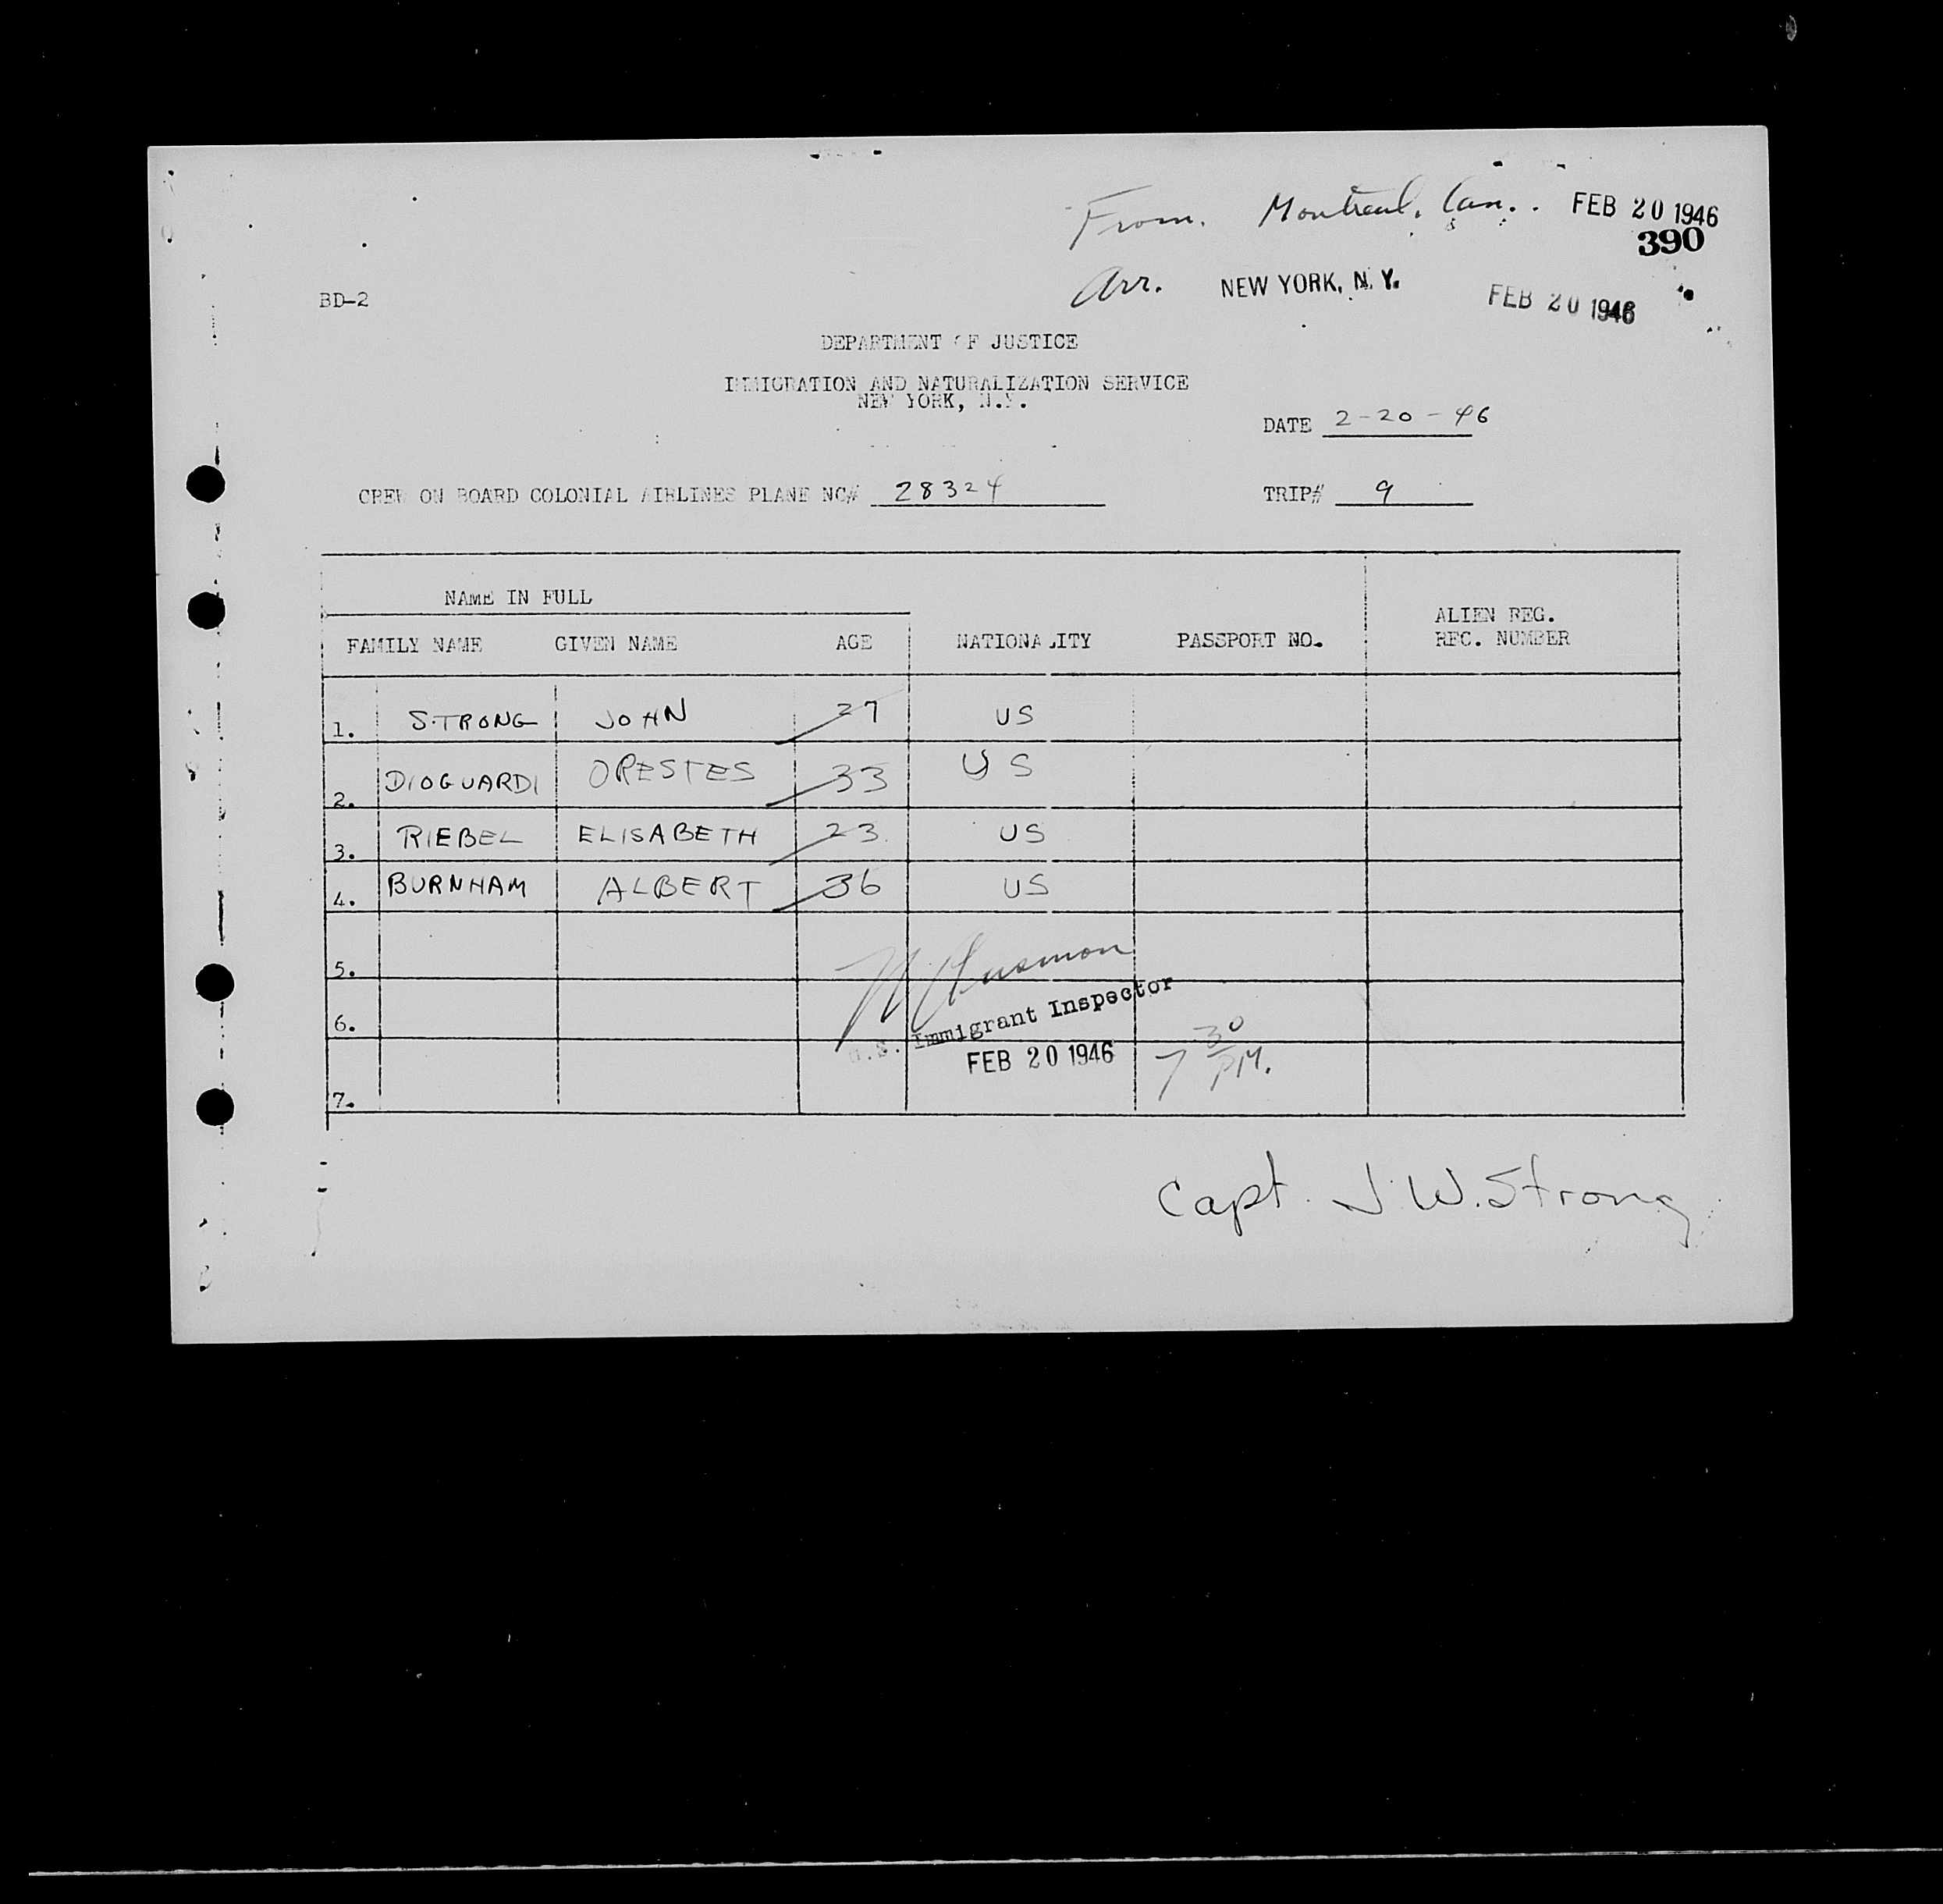 From. Montreal, Can.. FEB 20 1946
390
Arr. NEW YORK, N.Y. FEB 20 1946
BD-2
DEPARTMENT OF JUSTICE
IMMIGRATION AND NATURALIZATION SERVICE
NEW YORK, N.Y.
DATE 2-20-46
CREW ON BOARD COLONIAL AIRLINES PLANE NC# 28324 TRIP# 9
NAME IN FULL
FAMILY NAME GIVEN NAME AGE NATIONALITY PASSPORT NO. ALIEN REG. REC. NUMBER
1. STRONG JOHN 27 US
2. DIOGUARDI ORESTES 33 US
3. RIEBEL ELISABETH 23 US
4. BURNHAM ALBERT 36 US
5.
6.
U.S. Immigrant Inspector
FEB 20 1946 7 30 PM.
7.
Capt. J.W. Strong